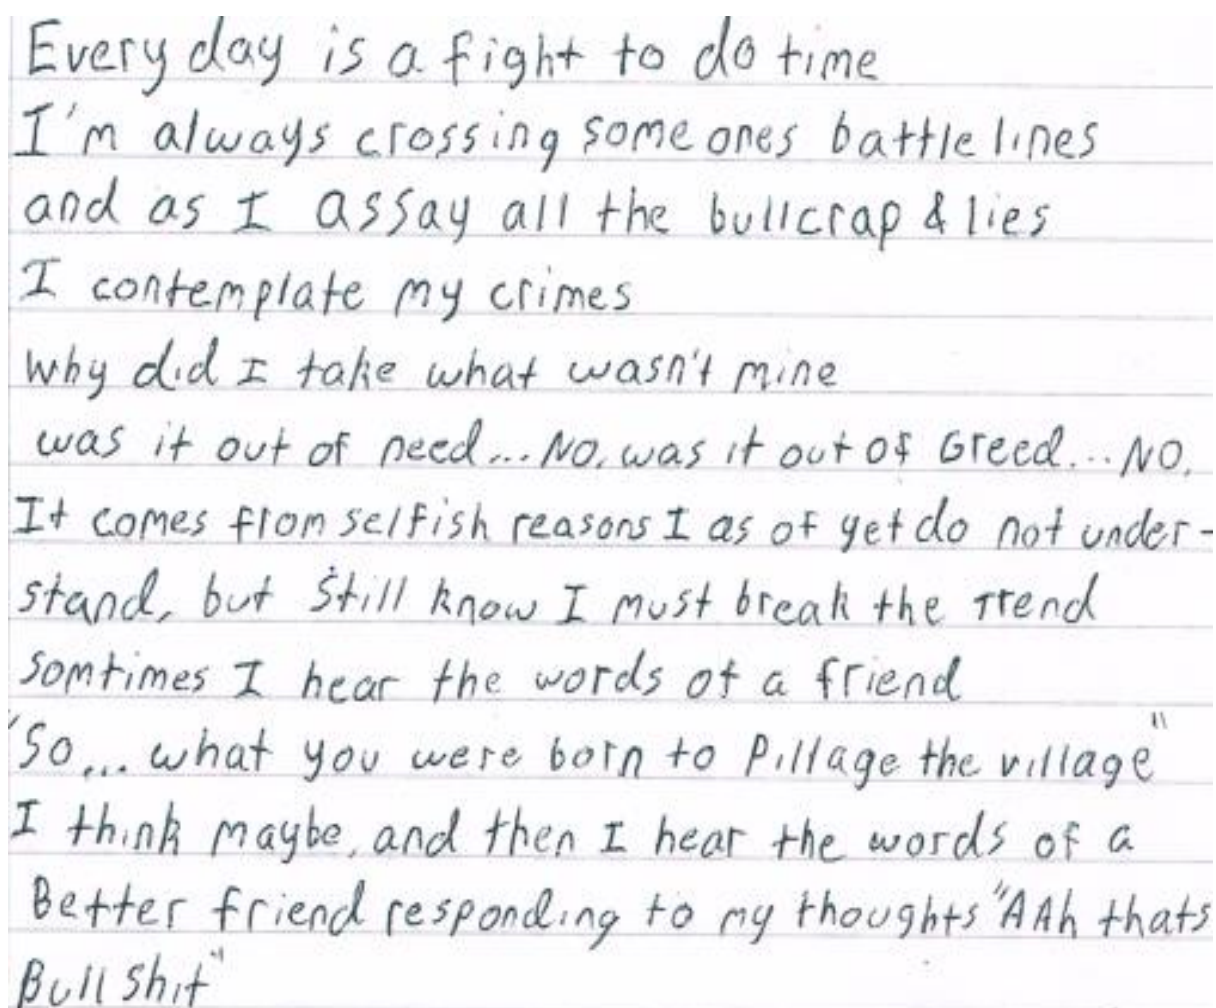 Every day is a fight to do time
I'm always crossing some ones battle lines
and as I assay all the bullcrap & lies
I contemplate my crimes
Why did I take what wasn't mine
was it out of need... NO, was it out of Greed... NO.
It comes from selfish reasons I as of yet do not under-
stand, but still know I must break the trend
somtimes I hear the words of a friend
"So... what you were born to Pillage the village"
I think maybe, and then I hear the words of a
Better friend responding to my thoughts "AAh thats
Bull shit"